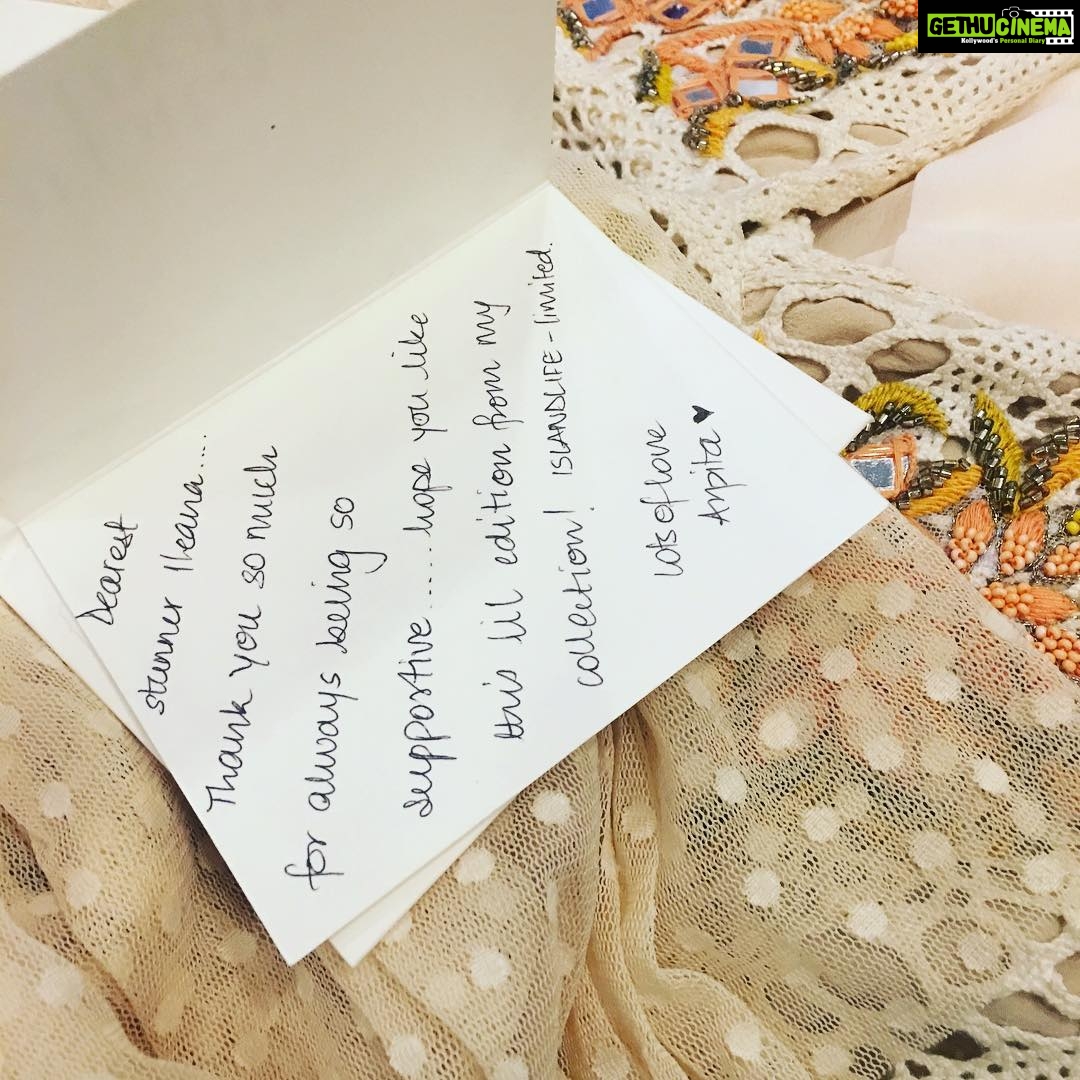 Dearest
stunner Ileana...
Thank you so much
for always being so
supportive.....hope you like
this lil edition from my
collection! ISLANDLIFE - limited.
lots of love
Arpita ♥
GETHUCINEMA
Kollywood's Personal Diary